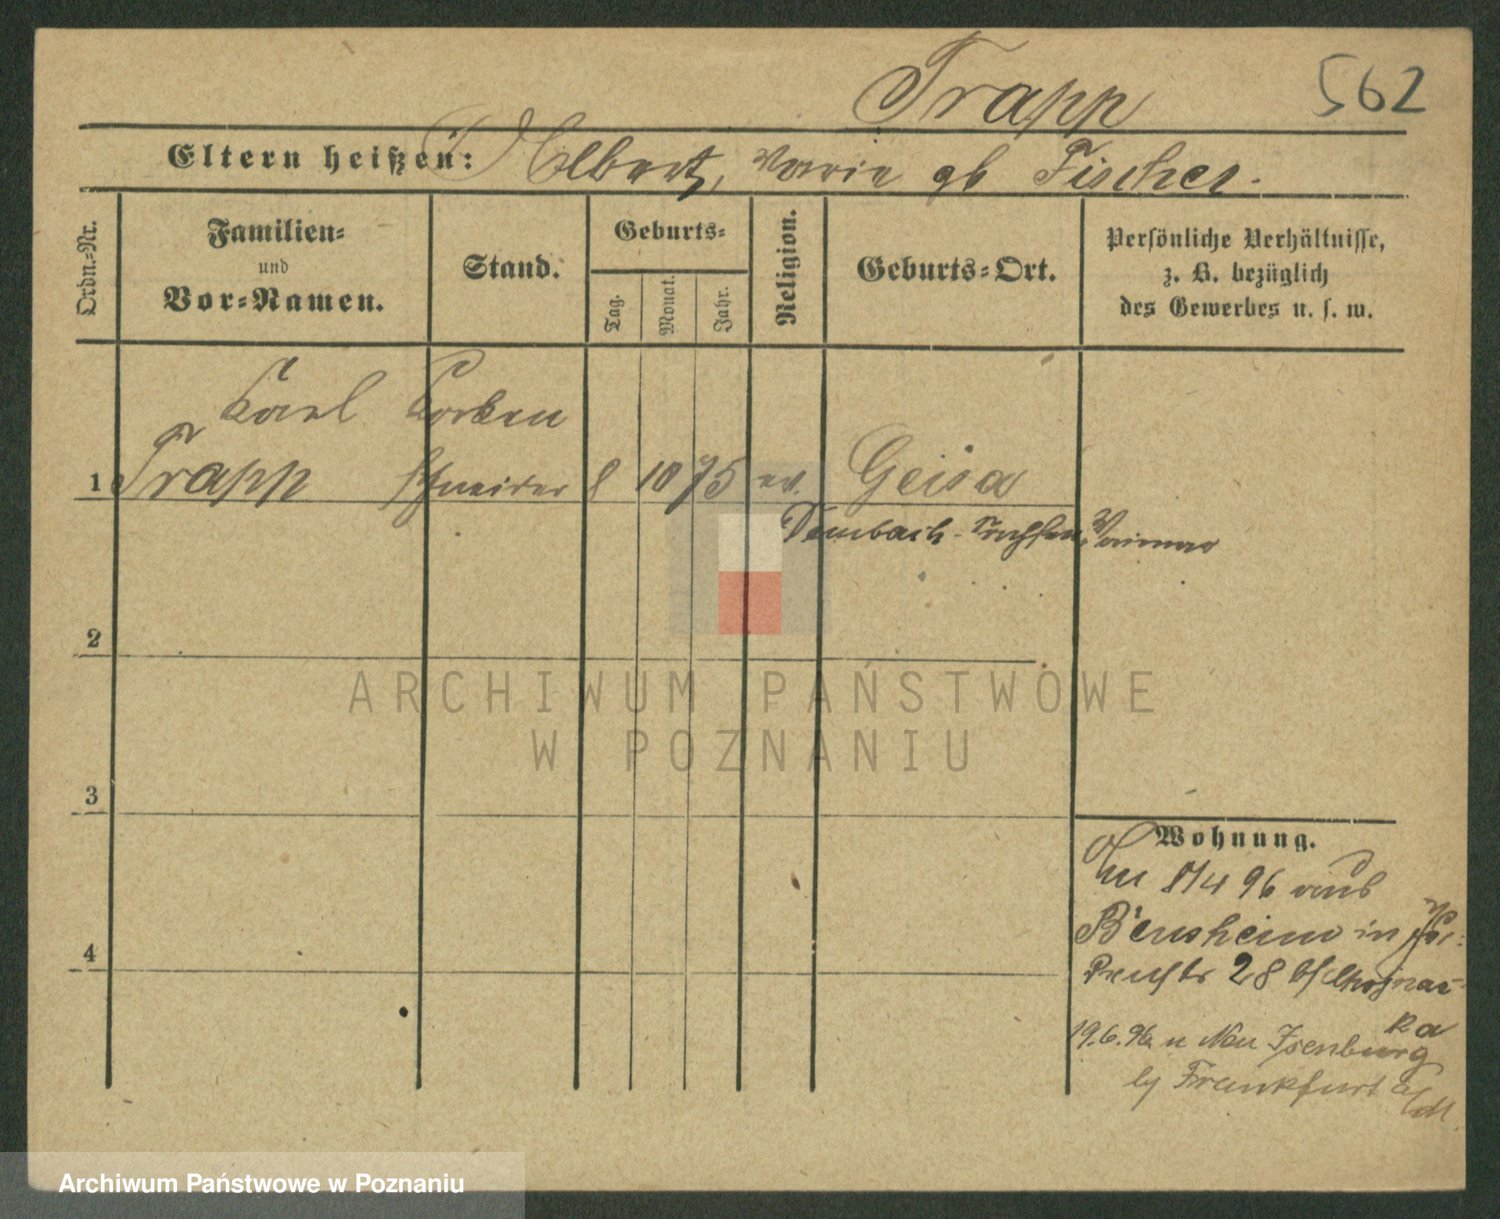 Trapp 562
Eltern heißen: Albert, Marie gb Fischer.
Ordn.-Nr. Familien- und Vor-Namen. Stand. Geburts- Tag. Monat. Jahr. Religion. Geburts-Ort. Persönliche Verhältnisse, z. B. bezüglich des Gewerbes u. s. w.
Karl Korben
1 Trapp Schneider 8 10 75 ev. Geisa
Dermbach - Sachsen Weimar
2
ARCHIWUM PAŃSTWOWE
W POZNANIU
3
Wohnung.
8/4 96 aus
4
Bensheim in
28 b/
19.6.96 n Neu Isenburg
by Frankfurt a/M.
Archiwum Państwowe w Poznaniu